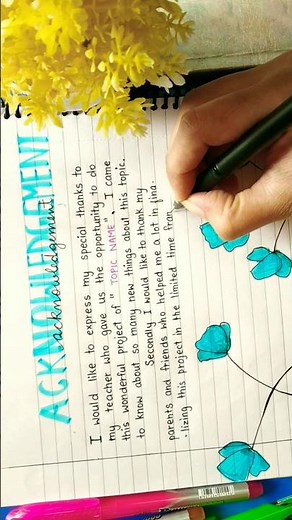 ACKNOWLEDGEMENT
acknowledgement
I would like to express my special thanks to
my teacher who gave us the opportunity to do
this wonderful project of " TOPIC NAME". I came
to know about so many new things about this topic.
Secondly I would like to thank my
parents and friends who helped me a lot in fina-
-lizing this project in the limited time fran